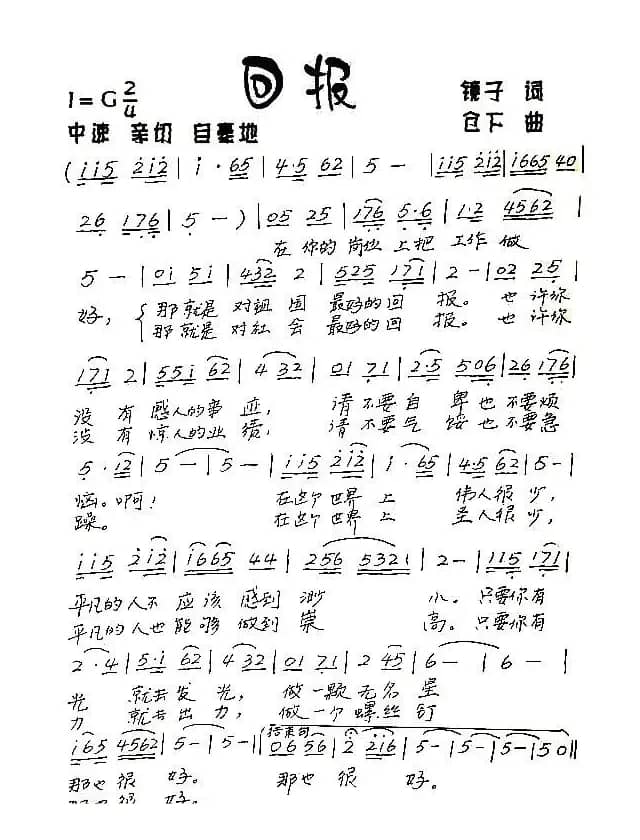 回报
1=G 2/4
镜子 词
中速 亲切 自豪地
仓下 曲
(i i 5 2 i 2 | i · 6 5 | 4 · 5 6 2 | 5 — | i i 5 2 i 2 | i 6 6 5 4 0 |
2 6 1 7 6 | 5 — ) | 0 5 2 5 | 1 7 6 5 · 6 | 1 · 2 4 5 6 2 |
在 你的 岗位 上把 工作 做
5 — | 0 i 5 i | 4 3 2 2 | 5 2 5 1 7 1 | 2 — | 0 2 2 5 |
好, 那 就是 对祖 国 最好的 回 报。 也 许你
那 就是 对社 会 最好的 回 报。 也 许你
1 7 1 2 | 5 5 i 6 2 | 4 3 2 | 0 1 7 1 | 2 · 5 5 0 6 | 2 6 1 7 6 |
没 有 感人的事 迹, 请 不要 自 卑 也 不要 烦
没 有 惊人的业 绩, 请 不要 气 馁 也 不要 急
5 · 1 2 | 5 — | 5 — | i i 5 2 i 2 | i · 6 5 | 4 · 5 6 2 | 5 — |
恼。啊! 在这个 世界 上 伟人很 少,
躁。 在这个 世界 上 圣人很 少,
i i 5 2 i 2 | i 6 6 5 4 4 | 2 5 6 5 3 2 1 | 2 — | 1 1 5 1 7 1 |
平凡的 人不 应该 感到 渺 小。 只要你有
平凡的 人也 能够 做到 崇 高。 只要你有
2 · 4 | 5 · i 6 2 | 4 3 2 | 0 1 7 1 | 2 4 5 | 6 — | 6 — | 6 — |
光 就去 发 光, 做 一颗 无名 星
力 就去 出 力, 做 一个 螺丝 钉
i 6 5 4 5 6 2 | 5 — | 5 — | 结束句 0 6 5 6 | 2 2 i 6 | 5 — | 5 — | 5 — | 5 0 ‖
那也 很 好。 那也 很 好。
那也 很 好。